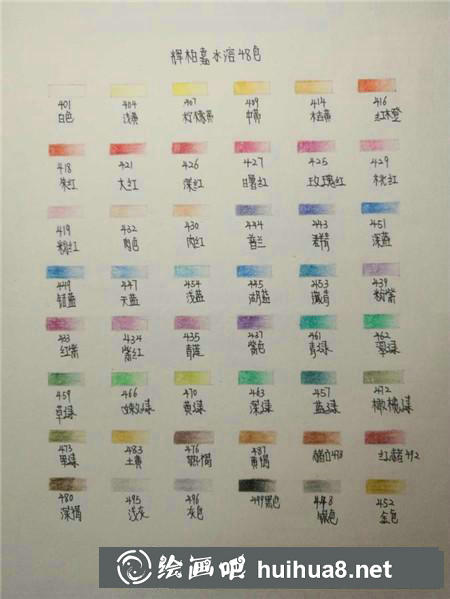 辉柏嘉水溶48色
401 404 407 409 414 416
白色 浅黄 柠檬黄 中黄 桔黄 红橙
418 421 426 427 425 429
朱红 大红 深红 曙红 玫瑰红 桃红
419 432 430 444 443 451
粉红 肉色 肉红 普兰 群青 深蓝
449 447 454 445 453 439
钴蓝 天蓝 浅蓝 湖蓝 藏青 粉紫
433 434 435 437 461 462
红紫 紫红 青莲 紫色 青绿 翠绿
459 466 470 463 457 472
草绿 嫩绿 黄绿 深绿 蓝绿 橄榄绿
473 483 476 487
墨绿 土黄 黄褐 赭石478 红赭492
480 495 496 499黑色 448 452
深褐 浅灰 灰色 银色 金色
绘画吧 huihua8.net